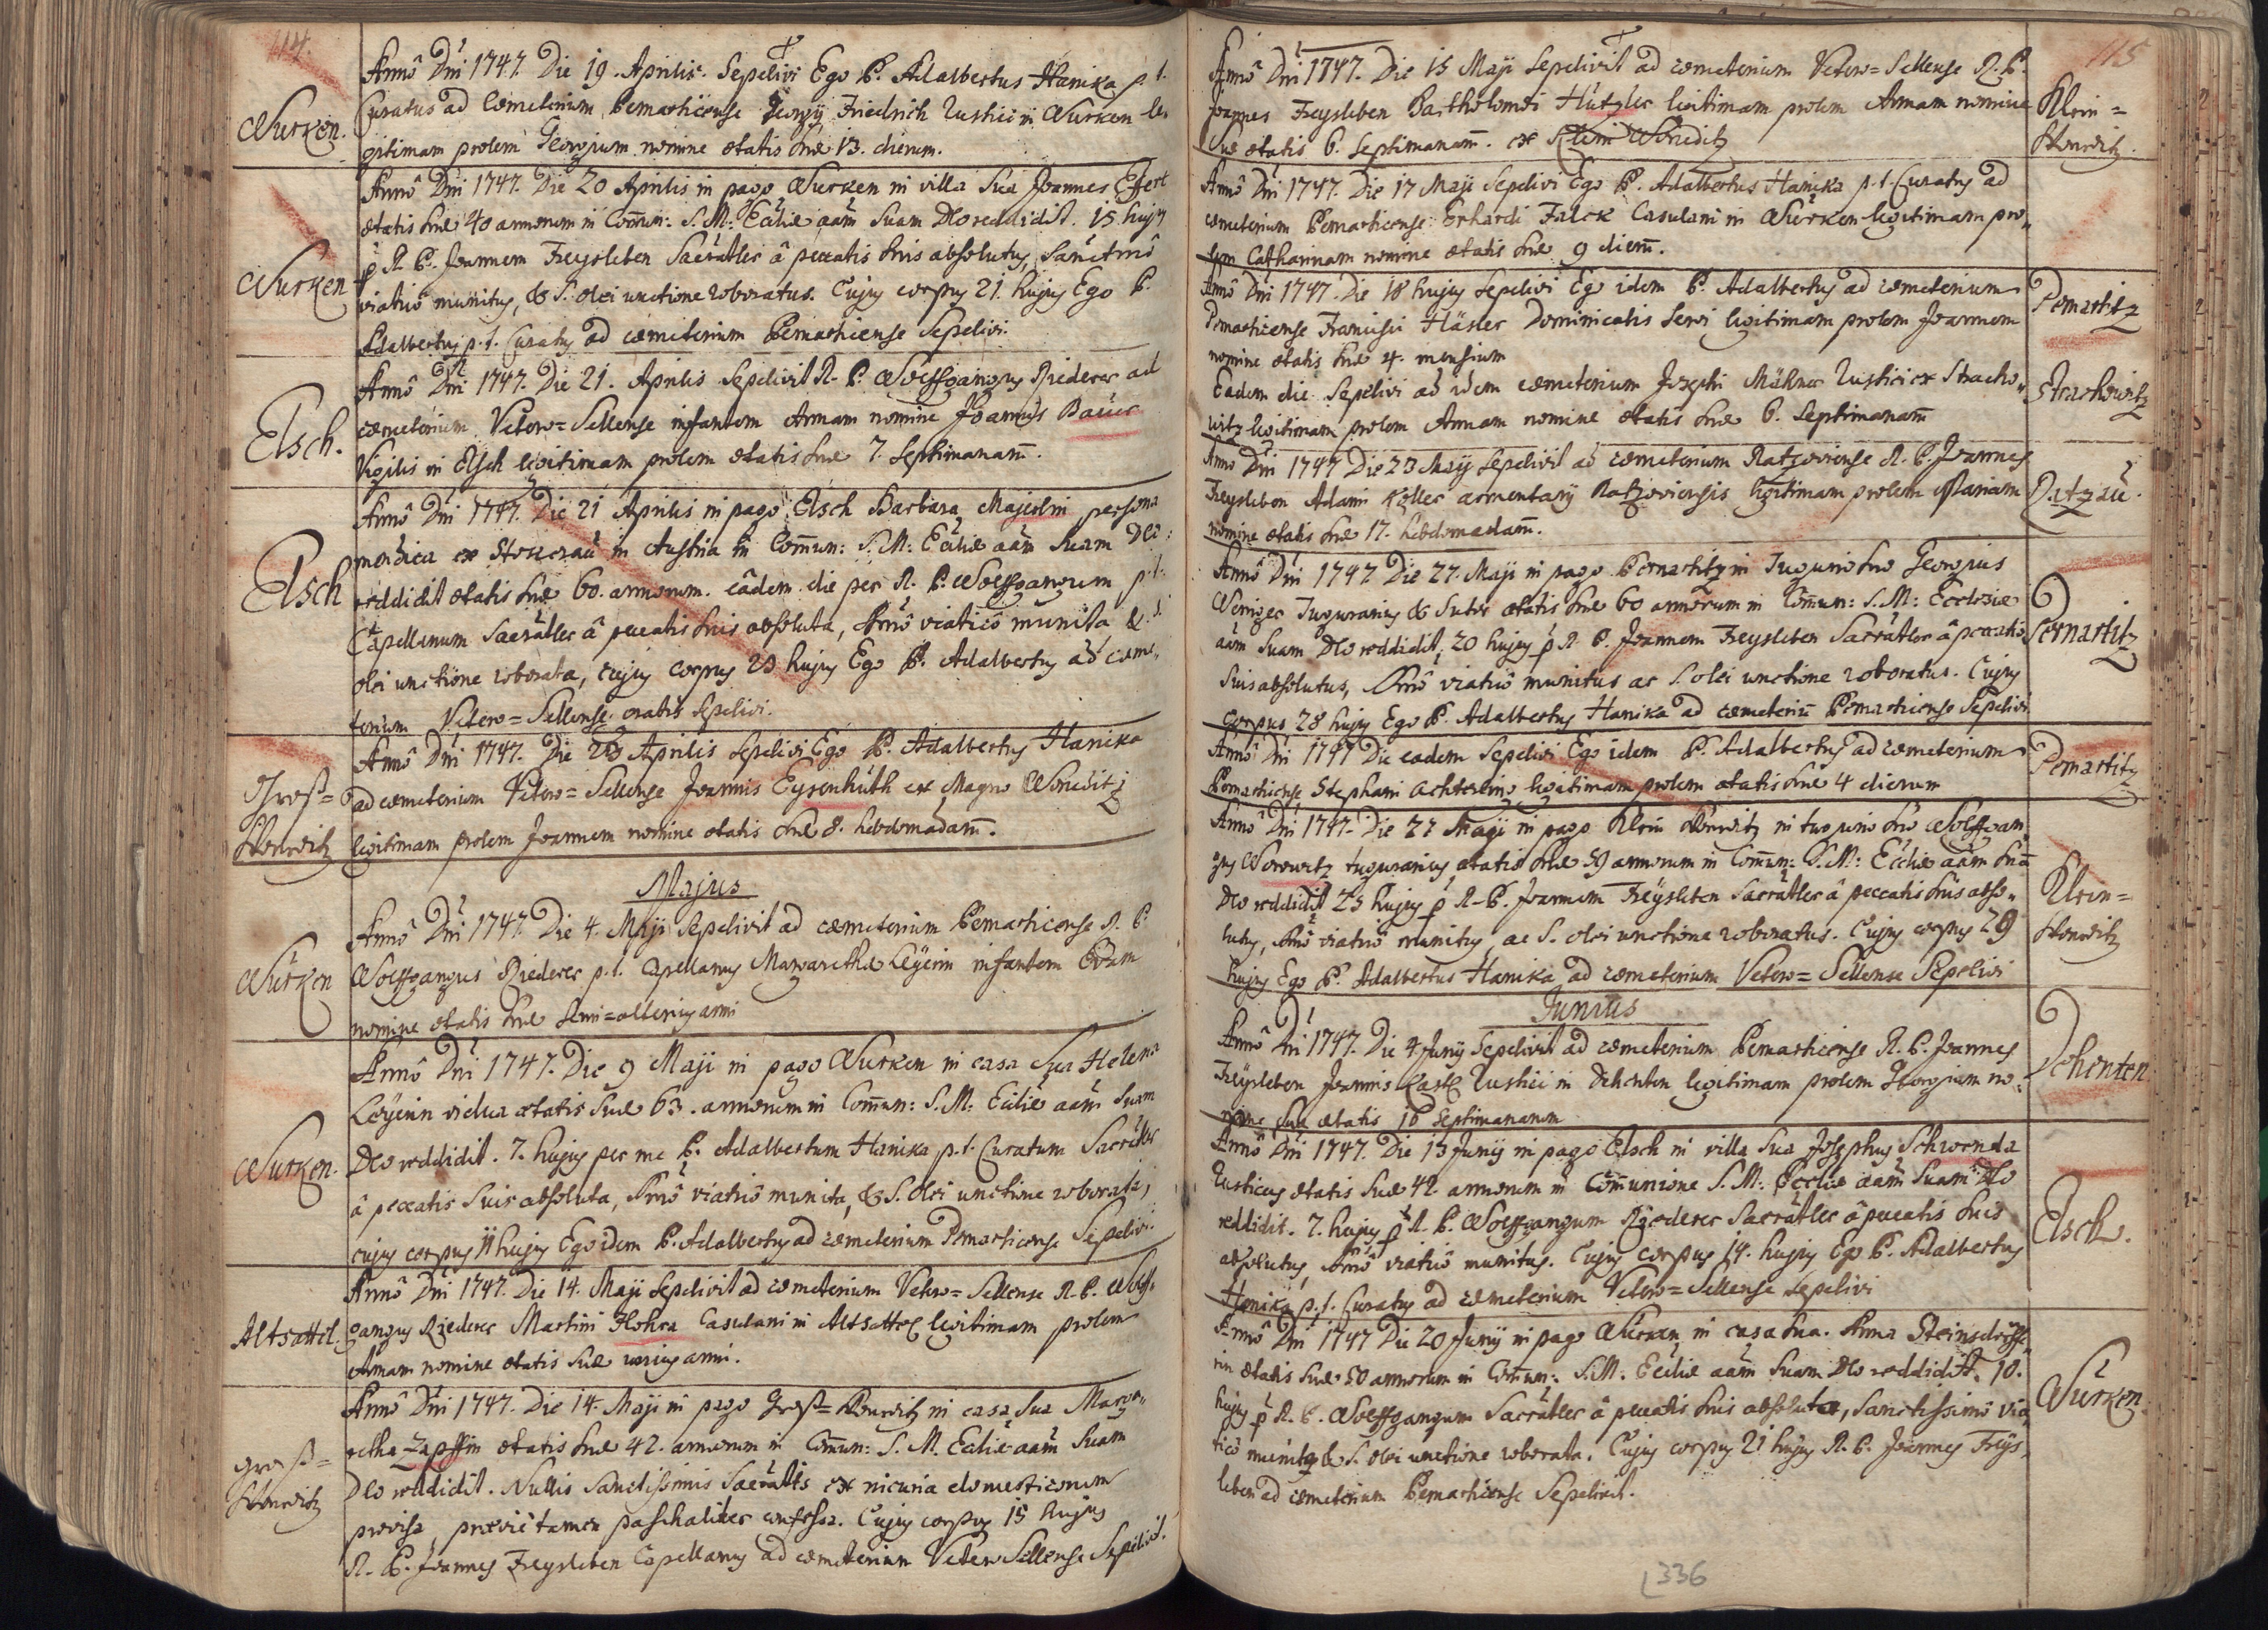 114.
Annô Dni 1747. Die 19. Aprilis. Sepelivi Ego P. Adalbertus Hanika p. t.
Wurken.
Curatus ad Cœmeterium Pernarticense Georgij Friedrich Rustici in Wurken le-
gitimam prolem Georgium nomine ætatis suæ 13. dierum.
Annô Dni 1747. Die 20 Aprilis in pago Wurken in villa sua Joannes
ætatis suæ 40 annorum in Comun: S. M: Eccliæ aam suam Deo reddidit. 15 hujus
Wurken
p R. P. Joannem Freysleben Sacratler â peccatis suis absolutus, Sanctmô
viaticô munitus, & S. olei unctione roboratus. Cujus corpus 21. hujus Ego P.
Adalbertus p. t. Curatus ad cœmeterium Pernarticense Sepelivi.
Annô Dni 1747. Die 21. Aprilis Sepelivit R. P. Wolffgangus Riederer ad
Elsch.
cœmeterium Vetero=Sellense infantem Annam nomine Joannis Bauer
Vigilis in Elsch legitimam prolem ætatis suæ 7. Septimanarū.
Annô Dni 1747. Die 21 Aprilis in pago Elsch Barbara Majerlin persona
mendica ex Stokerau in Austria in Comun: S. M: Eccliæ aam suam Deo
Elsch
reddidit ætatis suæ 60. annorum. eâdem die per R. P. Wolffgangum p. t.
Capellanum Sacratler â peccatis suis absoluta, Ssmô viaticô munita & S.
olei unctione roborata, cujus corpus 23 hujus Ego P. Adalbertus ad cœme-
terium Vetero=Sellense gratis Sepelivi.
Annô Dni 1747. Die 23 Aprilis Sepelivi Ego P. Adalbertus Hanika
Groß=
ad cœmeterium Vetero=Sellense Joannis Eysenhüth ex Magno Woneditz
Wonetitz
legitimam prolem Joannem nomine ætatis suæ 8. hebdomadarū.
Majus
Annô Dni 1747. Die 4. Maji Sepelivit ad cœmeterium Pernarticense R. P.
Würken
Wolffgangus Riederer p. t. Capellanus Margarethæ Leÿerin infantem Evam
nomine ætatis suæ semi=alterius anni
Annô Dni 1747. Die 9 Maji in pago Wurken in casa sua Helena
Leÿerin vidua ætatis suæ 63. annorum in Comun: S. M: Ecclie aam suam
Wurken.
Deo reddidit. 7. hujus per me P. Adalbertum Hanika p. t. Curatum Sacratler
â peccatis suis absoluta, Ssmô viaticô munita, & S. olei unctione roborata,
cujus corpus 11 hujus Ego idem P. Adalbertus ad cœmeterium Pernarticense Sepelivi.
Annô Dni 1747. Die 14. Maji Sepelivit ad cœmeterium Vetero=Sellense R. P. Wolff-
Altsattel.
gangus Riederer Martini Hohra Casulani in Altsattel legitimam prolem
Annam nomine ætatis suæ unius anni.
Annô Dni 1747. Die 14. Maji in pago Groß= Wonetitz in casa sua Marga-
retha Zapffin ætatis suæ 42. annorum in Comun: S. M. Ecclie aam suam
Groß=
Wonetitz
Deo reddidit. Nullis Sanctissimis Sacratis ex incuria domesticorum
provisa, præviè tamen paschaliter confessa. Cujus corpus 15 hujus
R. P. Joannes Freysleben Capellanus ad cœmeterium Vetero Sellense Sepelivit.
115
Annô Dni 1747. Die 15 Maji Sepelivit ad cœmeterium Vetero=Sellense R. P.
Joannes Freysleben Bartholomæi Hützler legitimam prolem Annam nomine
Klein=
Wonetitz.
suæ ætatis 6. Septimanarū. ex Klein Woneditz
Anno Dni 1747. Die 17 Maji Sepelivi Ego P. Adalbertus Hanika p. t. Curatus ad
cœmeterium Pernarticense Erhardi Falck Casulani in Würken legitimam pro-
lem Catharinam nomine ætatis suæ 9 dierū.
Annô Dni 1747. Die 18 hujus Sepelivi Ego idem P. Adalbertus ad cœmeterium
Pernartitz
Pernarticense Francisci Häsler Dominicalis servi legitimam prolem Joannem
nomine ætatis suæ 4. mensium
Eadem die Sepelivi ad idem cœmeterium Josephi Mähner Rustici ex Stracho-
Strachowitz
witz legitimam prolem Annam nomine ætatis suæ 6. Septimanarū
Annô Dni 1747 Die 23 Maij Sepelivit ad cœmeterium Ratzoviense R. P. Joannes
Freysleben Adami Koller armentarij Ratzoviensis legitimam prolem Mariam
Ratzau.
nomine ætatis suæ 17. hebdomadarū.
Annô Dni 1747 Die 27. Maji in pago Pernartitz in Tugurio suo Georgius
Weniger Tugurarius & Sutor ætatis suæ 60 annorum in Comun: S. M: Ecclesiæ
aam suam Deo reddidit, 20 hujus p R. P. Joannem Freysleben Sacratler â peccatis
Pernartitz
suis absolutus, Ssmô viaticô munitus ac S. olei unctione roboratus. Cujus
corpus 28 hujus Ego P. Adalbertus Hanika ad cœmeteriū Pernarticense Sepelivi
Annô Dni 1747 Die eadem Sepelivi Ego idem P. Adalbertus ad cœmeterium
Pernartitz
Pernarticense Stephani legitimam prolem ætatis suæ 4 dierum
Annô Dni 1747. Die 27 Maji in pago Klein Wonetitz in tugurio suo Wolffgan-
gus Worowitz tugurarius ætatis suæ 59 annorum in Comun: S. M: Ecclie aam suā
Deo reddidit 25 hujus p R. P. Joannem Freÿsleben Sacratler â peccatis suis abso-
Klein=
Wonetitz
lutus, Ssmô viaticô munitus, ac S. olei unctione roboratus. Cujus corpus 29
hujus Ego P. Adalbertus Hanika ad cœmeterium Vetero=Sellense Sepelivi
Junius
Annô Dni 1747. Die 4 Junij Sepelivit ad cœmeterium Pernarticense R. P. Joannes
Dehenten
Freysleben Joannis Rustici in Dehenten legitimam prolem Georgium no-
mine suæ ætatis 10 Septimanarum
Annô Dni 1747. Die 13 Junij in pago Elsch in villa sua Josephus Schwenda
Rusticus ætatis suæ 42. annorum in Communione S. M: Ecclie aam suam Deo
reddidit. 7. hujus p R. P. Wolffgangum Riederer Sacratler â peccatis suis
Elsch.
absolutus, Ssmô viaticô munitus. Cujus corpus 14. hujus Ego P. Adalbertus
Hanika p. t. Curatus ad cœmeterium Vetero=Sellense Sepelivi
Annô Dni 1747 Die 20 Junij in pago Würken in casa sua. Anna Steinsdörffe-
rin ætatis suæ 50 annorum in Comun: S. M. Ecclie aam suam Deo reddidit. 10.
Würken.
hujus p R. P. Wolffgangum Sacratler â peccatis suis absoluta, Sanctissimô via-
ticô munita & S. olei unctione roborata. Cujus corpus 21 hujus R. P. Joannes Freÿs-
leben ad cœmeterium Pernarticense Sepelivit.
336